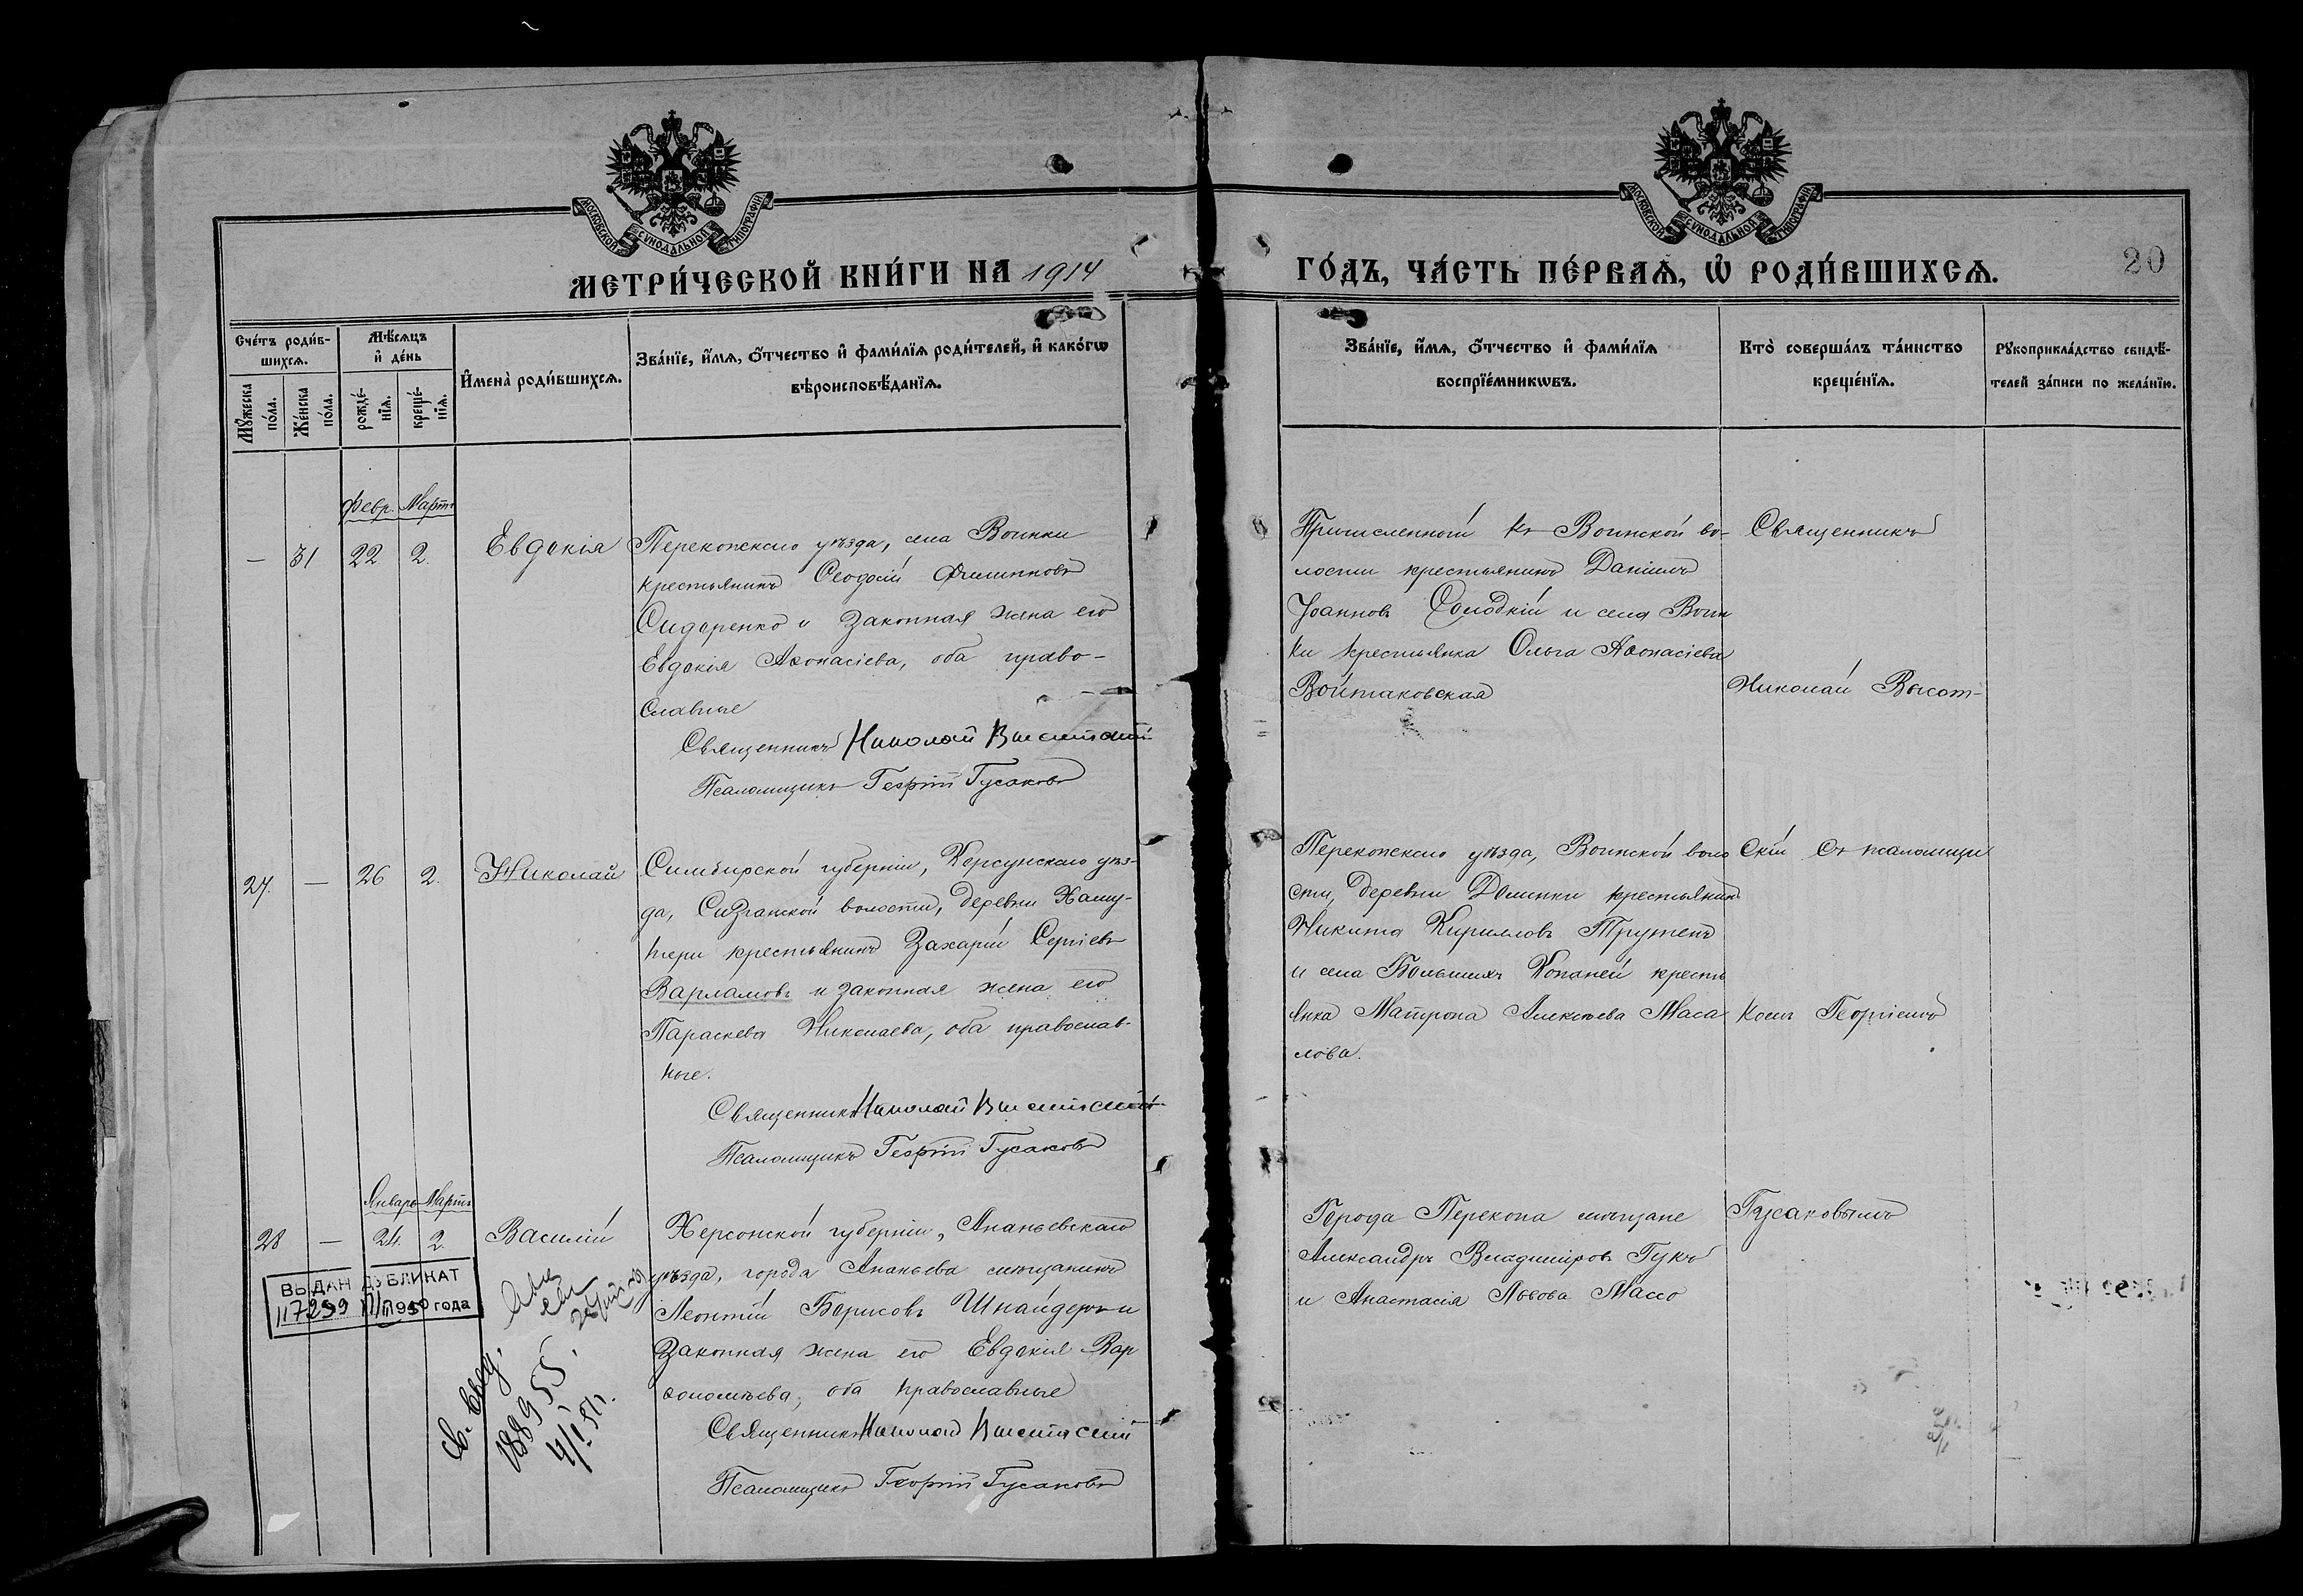 МОСКОВСКОЙ СѴНОДАЛЬНОЙ ТИПОГРАФІИ
МОСКОВСКОЙ СѴНОДАЛЬНОЙ ТИПОГРАФІИ
МЕТРИ́ЧЕСКОЙ КНИ́ГИ НА 1914
ГО́ДЪ, ЧА́СТЬ ПЕ́РВАѦ, Ѡ҆ РОДИ́ВШИХСѦ.
20
Сче́тъ роди́в-
шихсѧ.
Мꙋ́жеска
по́ла.
Же́нска
по́ла.
Мѣ́сѧцъ
и҆ де́нь
рожде́-
нїѧ.
креще́-
нїѧ.
И҆мена̀ роди́вшихсѧ.
Зва́нїе, и҆́мѧ, ѻ҆́тчество и҆ фами́лїѧ роди́телей, и҆ како́гѡ
вѣроисповѣ́данїѧ.
Зва́нїе, и҆́мѧ, ѻ҆́тчество и҆ фами́лїѧ
воспрїе́мникѡвъ.
Кто̀ соверша́лъ та́инство
креще́нїѧ.
Рꙋкоприкла́дство свидѣ́-
телей за́писи по жела́нїю.
Февр. Мартъ
— 31 22 2. Евдокія
Перекопскаго уѣзда, села Воинки
крестьянинъ Ѳеодосій Филипповъ
Сидоренко и законная жена его
Евдокія Аѳонасіева, оба право-
славные
Священникъ Николай Высотскій
Псаломщикъ Георгій Гусаковъ
Причисленный къ Воинской во-
лости крестьянинъ Даніилъ
Іоанновъ Солодкій и села Воин
ки крестьянка Ольга Аѳонасіева
Войтаковская
Священникъ
Николай Высот-
27. — 26 2. Николай
Симбирской губерніи, Корсунскаго уѣз-
да, Сызганской волости, деревни
крестьянинъ Захарій Сергіевъ
Варламовъ и законная жена его
Параскева Николаева, оба православ-
ные.
Священникъ Николай Высотскій
Псаломщикъ Георгій Гусаковъ
Перекопскаго уѣзда, Воинской воло
сти, деревни крестьянинъ
Никита Кирилловъ Трутенъ
и села Большихъ Копаней кресть
янка Матрона Алексѣева Маса
лова.
скій съ псаломщи
комъ Георгіемъ
Январь Мартъ
28 — 24. 2. Василій
Херсонской губерніи, Ананьевскаго
уѣзда, города Ананьева мѣщанинъ
Леонтій Борисовъ Шнайдеръ и
законная жена его Евдокія Вар
ѳоломѣева, оба православные
Священникъ Николай Высотскій
Псаломщикъ Георгій Гусаковъ
Города Перекопа мѣщане
Александръ Владиміровъ Гукъ
и Анастасія Львова Массо
Гусаковымъ
ВЫДАН ДУБЛИКАТ
года
188955
4/I 51г.